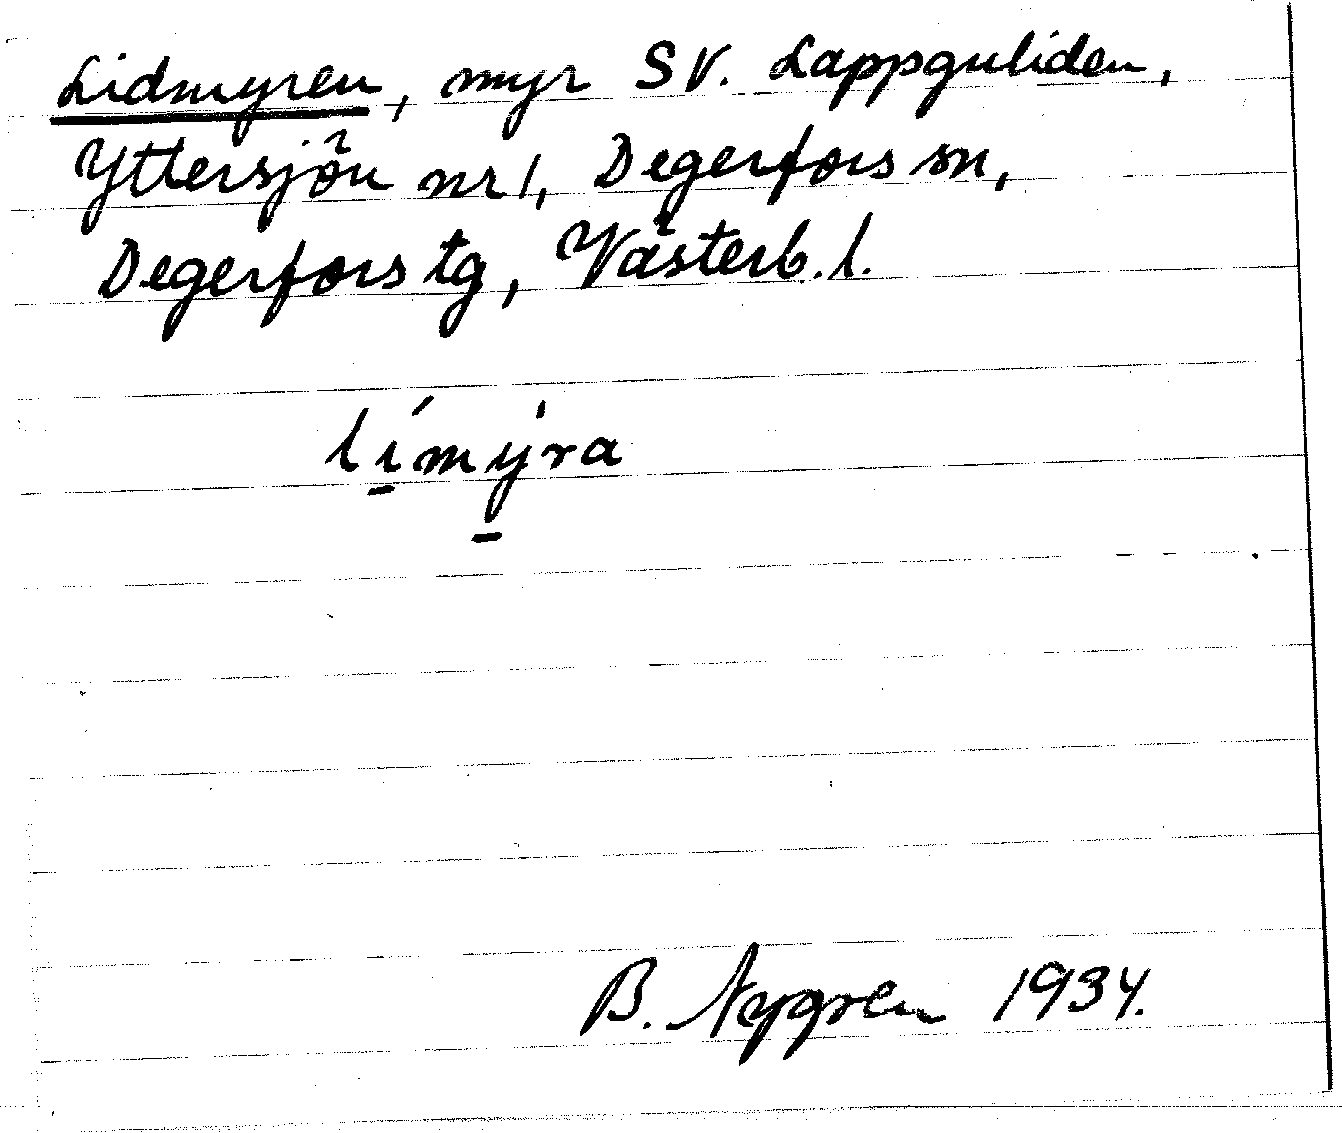 Lidmyren, myr SV. Lappguliden,
Yttersjön nr 1, Degerfors sn,
Degerfors tg, Västerb. l.
límýra
B. Nygren 1934.